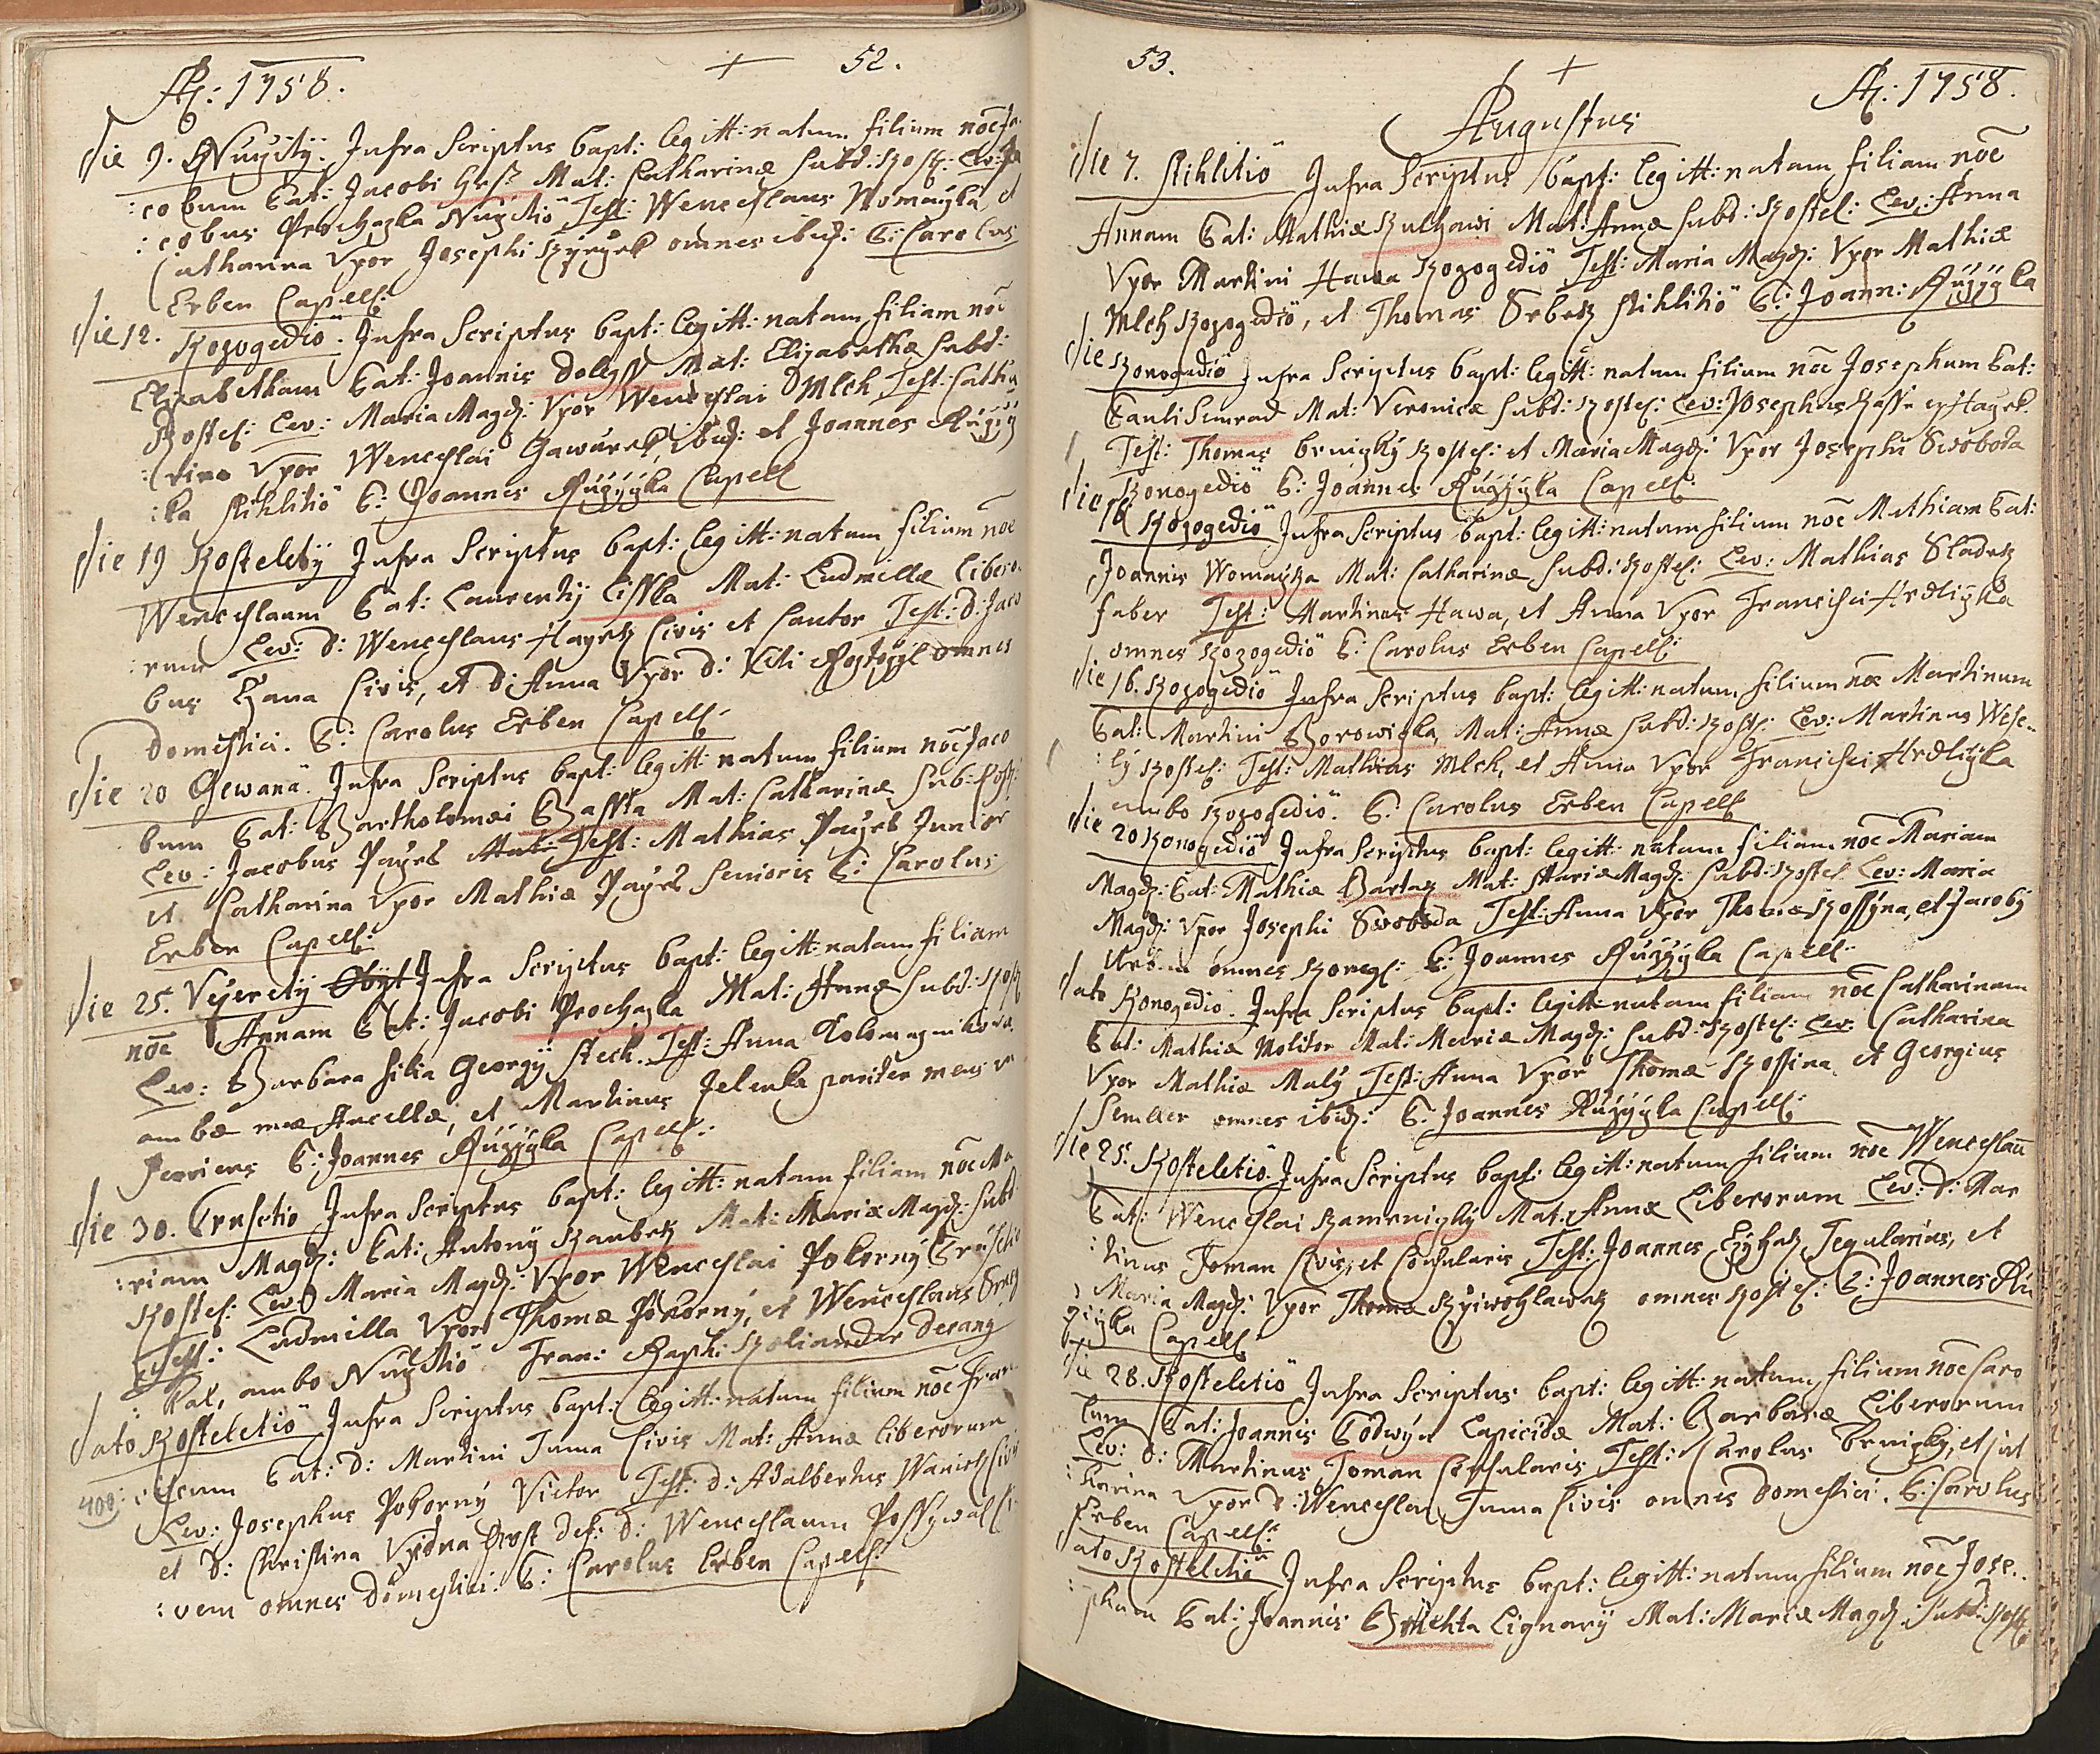 52.
A: 1758.
Die 9. Nuzitij. Infra Scriptus bapt: legitt: natum filium noe Ja
:cobum Pat: Jacobi Mat: Catharinæ Subd: Kost: Lev: Ja
:cobus Prochazka Test: Wenceslaus et
Catharina Vxor Josephi omnes ibid: P: Carolus
Erben Capell:
Die 12. Kozogedio. Infra Scriptus bapt: legitt: natam filiam noe
Elizabetham Pat: Joannis Mat: Elizabethæ Subd:
Kostel: Lev: Maria Magd: Vxor Wenceslai Mlch, Test: Catha
:rina Vxor Wenceslai Gawurek, ibid: et Joannes Ruzyz
:ka P: Joannes Ruzyzka Capell
Die 19 Kosteletij Infra Scriptus bapt: legitt: natum filium noe
Wenceslaum Pat: Laurentij Lisska Mat: Ludmillæ libero-
:rum Lev: D: Wenceslaus Hayek Civis et Cantor Test: D: Jaco
bus Hana Civis, et D: Anna Vxor D: Viti omnes
Domestici. P: Carolus Erben Capell:
Die 20 Gewana. Infra Scriptus bapt: legitt: natum filium noe Jaco
bum Pat: Bartholomæi Bassta Mat: Catharinæ Sub: Kost:
Lev: Jacobus Payer Test: Mathias Payer Junior
et Catharina Vxor Mathiæ Payer Senioris P: Carolus
Erben Capell:
Die 25. Infra Scriptus bapt: legitt: natam filiam
noe Annam Pat: Jacobi Prochazka Mat: Annæ Subd: Kost
Lev: Barbara filia Georgij Stech. Test: Anna
ambæ meæ Ancellæ, et Martinus Jelenka pariter meus
P: Joannes Ruzyzka Capell:
Die 30. Infra Scriptus bapt: legitt: natam filiam noe Ma
:riam Magd: Pat: Antonij Kaubek Mat: Mariæ Magd: Subd
Kostel: Lev: Maria Magd: Vxor Wenceslai Pokorný
Test: Ludmilla Vxor Thomæ Pokorný, et Wenceslaus
ambo Fran: Raph: Koliander Decang
Dato Kosteletio Infra Scriptus bapt: legitt: natum filium noe Fran
:ciscum Pat: D: Martini Tuma Civis Mat: Annæ liberorum
400
Lev: Josephus Pokorný Victor Test: D: Adalbertus Wanick Civis
et D: Christina Vidua post Def: D: Wenceslaum Possywal Ci
:vem omnes Domestici. P: Carolus Erben Capell:
53.
A: 1758.
Augustus
Die 7. Infra Scriptus bapt: legitt: natam filiam noe
Annam Pat: Mathiæ Mat: Annæ Subd: Kostel: Lev: Anna
Vxor Martini Hawa Kozogedio Test: Maria Magd: Vxor Mathiæ
Mlch Kozogedio, et Thomas P: Joann: Ruzyzka
Die Konogedio Infra Scriptus bapt: legitt: natum filium noe Josephum Pat:
Pauli Simrad Mat: Veronicæ Subd: Kostel: Lev: Josephus
Test: Thomas Brnizky Kostel: et Maria Magd: Vxor Josephi Swoboda
Konogedio P: Joannes Ruzyzka Capell:
Die 16 Kozogedio Infra Scriptus bapt: legitt: natum filium noe Mathiam Pat:
Joannis Womayka Mat: Catharinæ Subd: Kostel: Lev: Mathias Sladek
faber Test: Martinus Hawa, et Anna Vxor Francisci Hrdlizka
omnes Kozogedio P: Carolus Erben Capell:
Die 16. Kozogedio Infra Scriptus bapt: legitt: natum filium noe Martinum
Pat: Martini Borowizka, Mat: Annæ Subd: Kost: Lev: Martinus Wese-
:ly Kostel: Test: Mathias Mlch, et Anna Vxor Francisci Hrdlizka
ambo Kozogedio. P: Carolus Erben Capell:
Die 20 Konogedio Infra Scriptus bapt: legitt: natam filiam noe Mariam
Magd: Pat: Mathiæ Bartak Mat: Mariæ Magd: Subd: Kostel Lev: Maria
Magd: Vxor Josephi Swoboda Test: Anna Vxor Thomæ Kossyna, et Jacobij
omnes Konog: P: Joannes Ruzyzka Capell:
Dato Konogedio. Infra Scriptus bapt: legitt: natam filiam noe Catharinam
Pat: Mathiæ Molitor Mat: Mariæ Magd: Subd: Kostel: Lev: Catharina
Vxor Mathiæ Malý Test: Anna Vxor Thomæ Kossina et Georgius
Semler omnes ibid: P: Joannes Ruzyzka Capell:
Die 25. Kosteletio. Infra Scriptus bapt: legitt: natum filium noe Wenceslau
Pat: Wenceslai Kamenizky Mat: Annæ Liberorum Lev: D: Mar
:tinus Toman Civis, et Consularis Test: Joannes Tegularius, et
Maria Magd: Vxor Thomæ omnes Kostel: P: Joannes Ru
zyzka Capell:
Die 28. Kosteletio Infra Scriptus bapt: legitt: natum filium noe Caro
lum Pat: Joannis Podwin Lapicidæ Mat: Barbaræ Liberorum
Lev: D: Martinus Toman Consularis Test: Carolus Brnizky, et Cat
:harina Vxor D: Wenceslai Tuma Civis omnes Domestici. P: Carolus
Erben Capell:
Dato Kosteletio Infra Scriptus bapt: legitt: natum filium noe Jose-
:phum Pat: Joannis Lignarij Mat: Mariæ Magd: Subd: Kost: